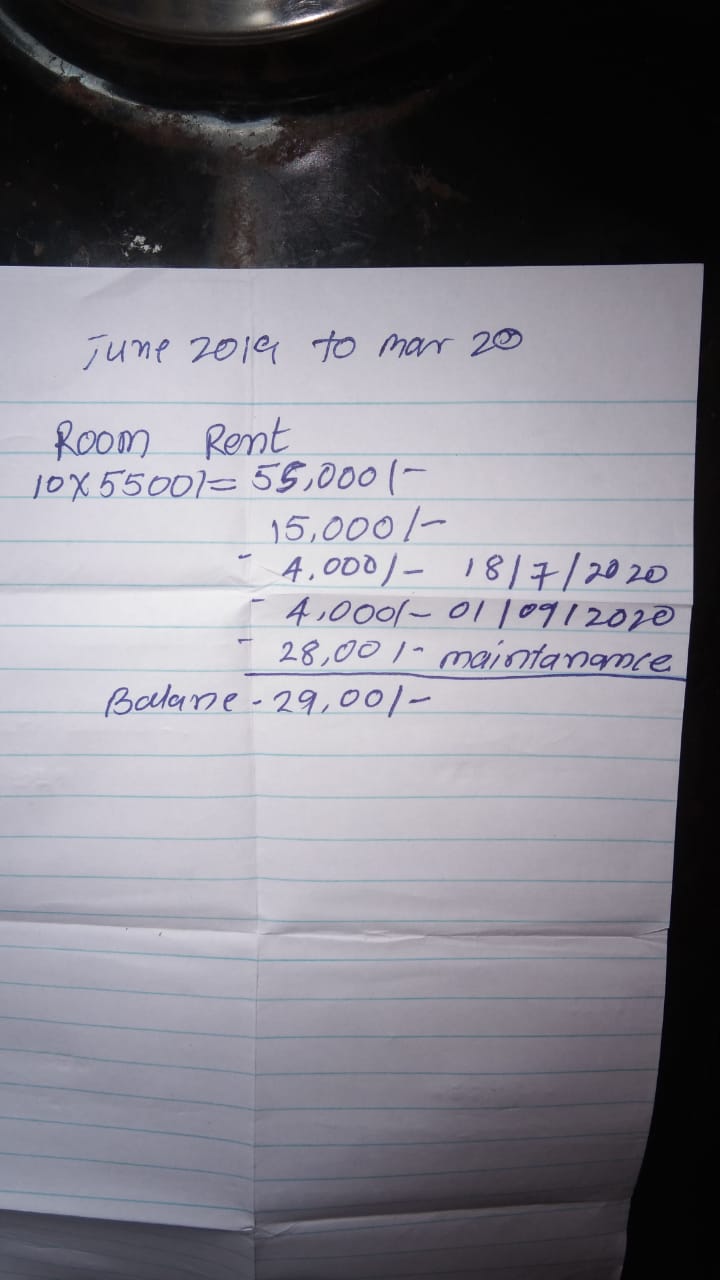 June 2019 to mar 20
Room Rent
10X5500/= 55,000/-
15,000/-
- 4,000/- 18/7/2020
- 4,000/- 01/09/2020
- 28,00/- maintanance
Balane - 29,00/-